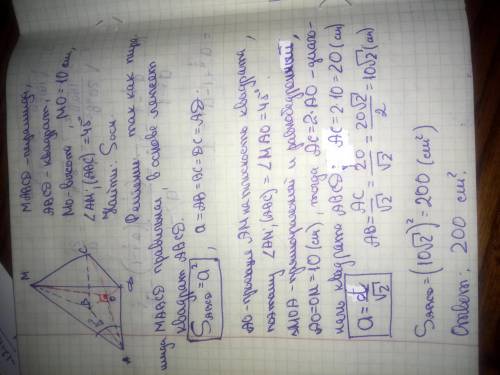 MABCD-пирамида,
ABCD-квадрат,
MO-высота, MO=10 см,
∠AM;(ABC)=45°
Найти: Sосн
Решение: так как пира-
мида MABCD правильная, в основе лежит
квадрат ABCD.
a=AB=BC=DC=AD.
S_ABCD=a²,
AO-проекция AM на плоскость квадрата,
поэтому ∠AM;(ABC)=∠MAO=45°.
ΔMOA-прямоугольный и равнобедренный,
AO=OM=10(см), тогда AC=2·AO-диаго-
наль квадрата ABCD; AC=2·10=20(см)
a=d/√2 AB=AC/√2=20/√2=20√2/2=10√2(см)
S_ABCD=(10√2)²=200(см²)
Ответ: 200 см².
M
A
B
C
D
O